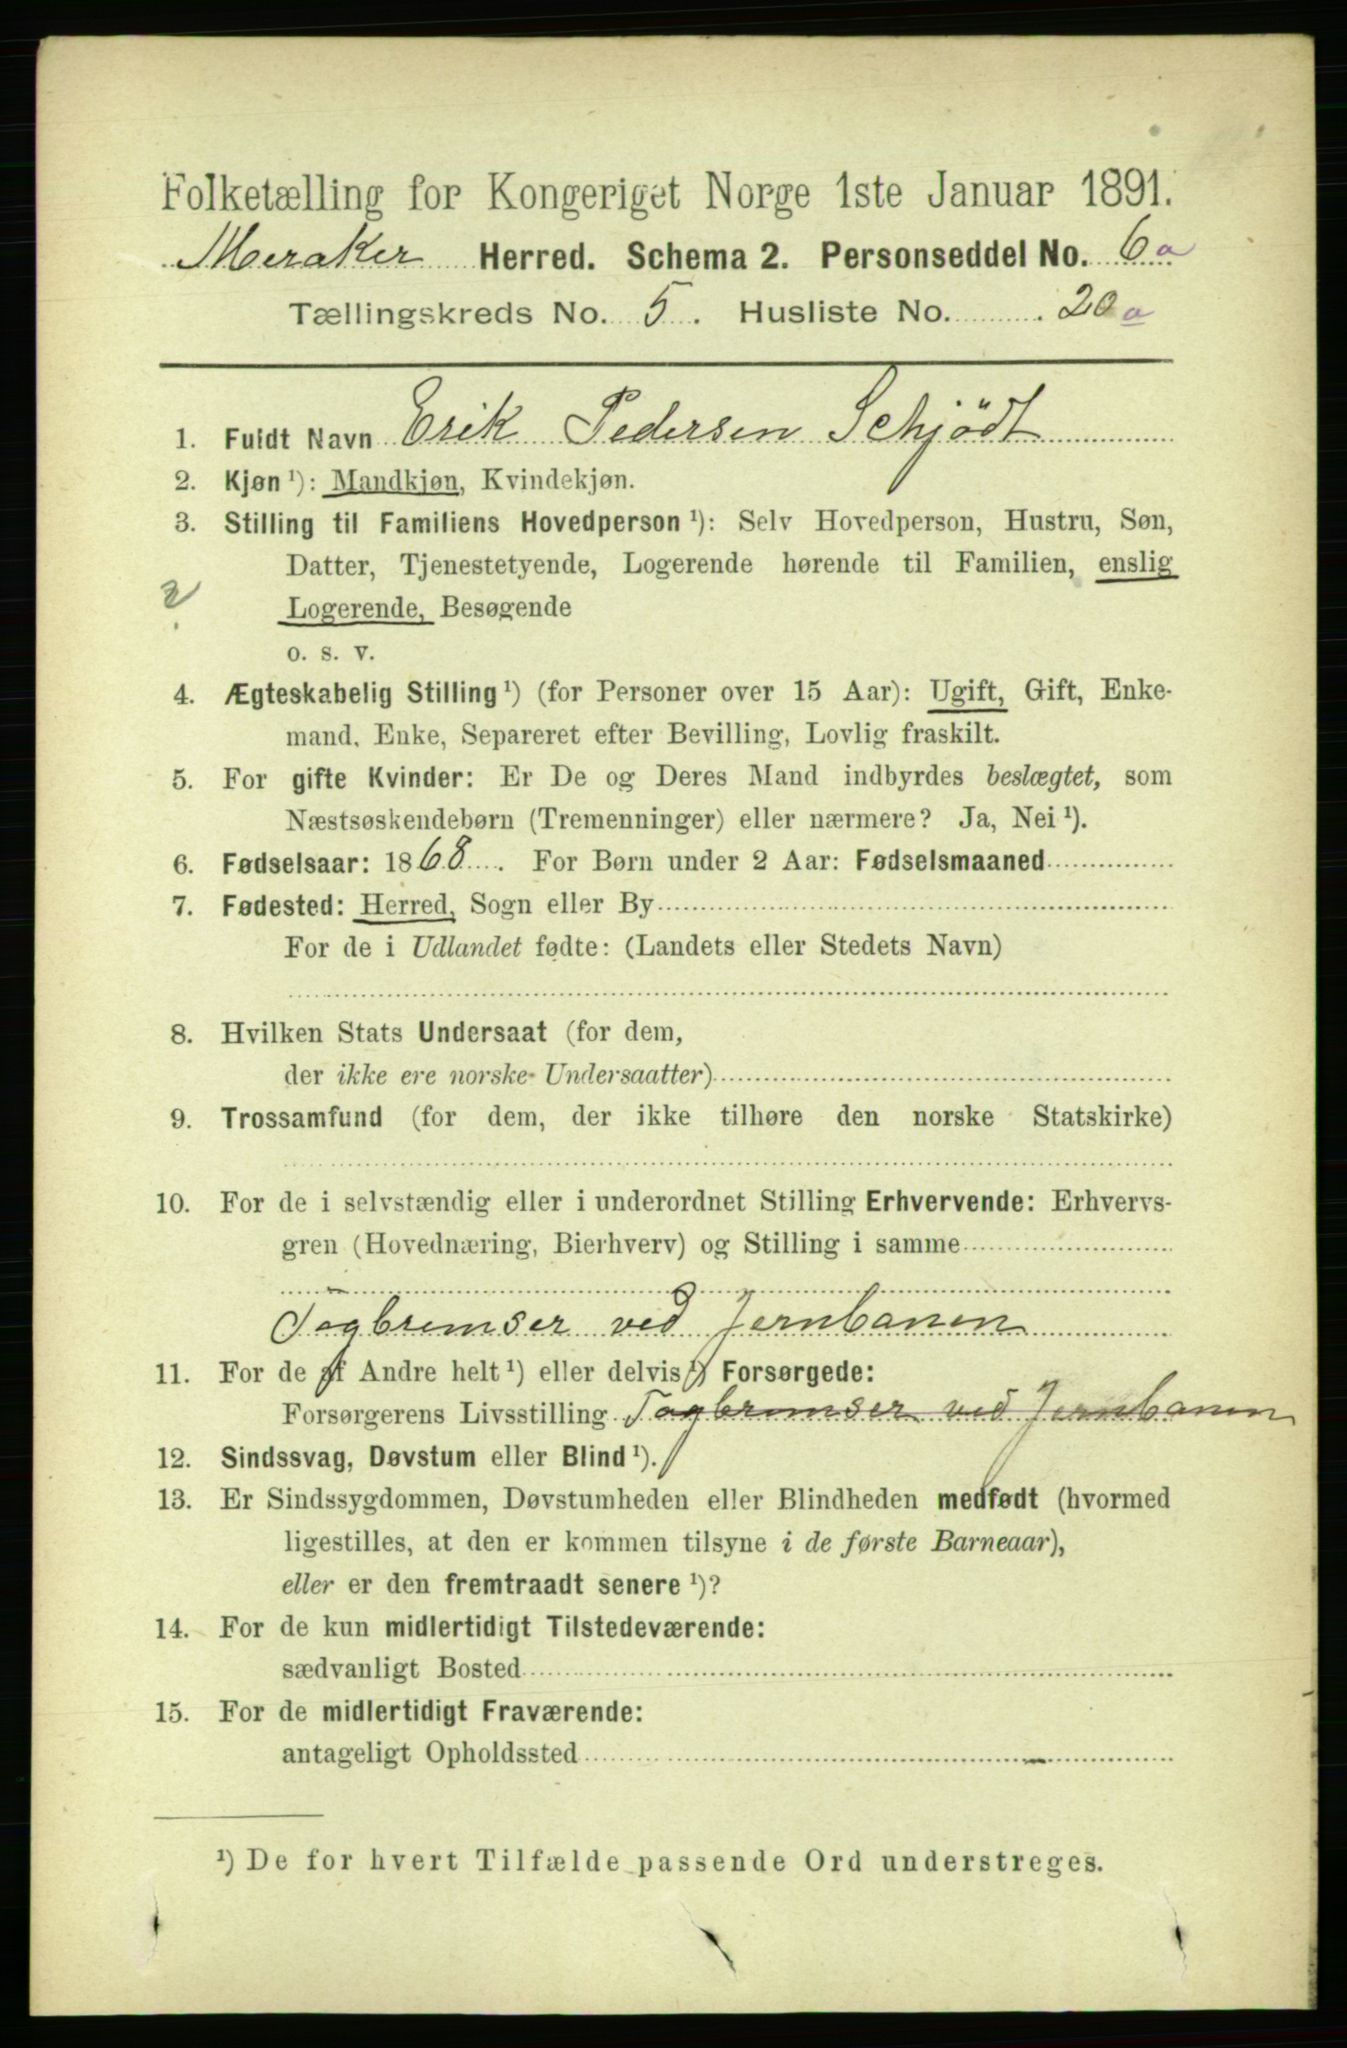 Folketælling for Kongeriget Norge 1ste Januar 1891.
Meraker Herred. Schema 2. Personseddel No. 6a
Tællingskreds No. 5. Husliste No. 20a
1. Fuldt Navn Erik Pedersen Schjödt
2. Kjøn¹): Mandkjøn, Kvindekjøn.
3. Stilling til Familiens Hovedperson¹): Selv Hovedperson, Hustru, Søn,
Datter, Tjenestetyende, Logerende hørende til Familien, enslig
Logerende, Besøgende
o. s. v.
4. Ægteskabelig Stilling¹) (for Personer over 15 Aar): Ugift, Gift, Enke-
mand, Enke, Separeret efter Bevilling, Lovlig fraskilt.
5. For gifte Kvinder: Er De og Deres Mand indbyrdes beslægtet, som
Næstsøskendebørn (Tremenninger) eller nærmere? Ja, Nei¹).
6. Fødselsaar: 1868. For Børn under 2 Aar: Fødselsmaaned
7. Fødested: Herred, Sogn eller By
For de i Udlandet fødte: (Landets eller Stedets Navn)
8. Hvilken Stats Undersaat (for dem,
der ikke ere norske Undersaatter)
9. Trossamfund (for dem, der ikke tilhøre den norske Statskirke)
10. For de i selvstændig eller i underordnet Stilling Erhvervende: Erhvervs-
gren (Hovednæring, Bierhverv) og Stilling i samme
Togbremser ved Jernbanen
11. For de af Andre helt¹) eller delvis¹) Forsørgede:
Forsørgerens Livsstilling Togbremser ved Jernbanen
12. Sindssvag, Døvstum eller Blind¹).
13. Er Sindssygdommen, Døvstumheden eller Blindheden medfødt (hvormed
ligestilles, at den er kommen tilsyne i de første Barneaar),
eller er den fremtraadt senere¹)?
14. For de kun midlertidigt Tilstedeværende:
sædvanligt Bosted
15. For de midlertidigt Fraværende:
antageligt Opholdssted
¹) De for hvert Tilfælde passende Ord understreges.